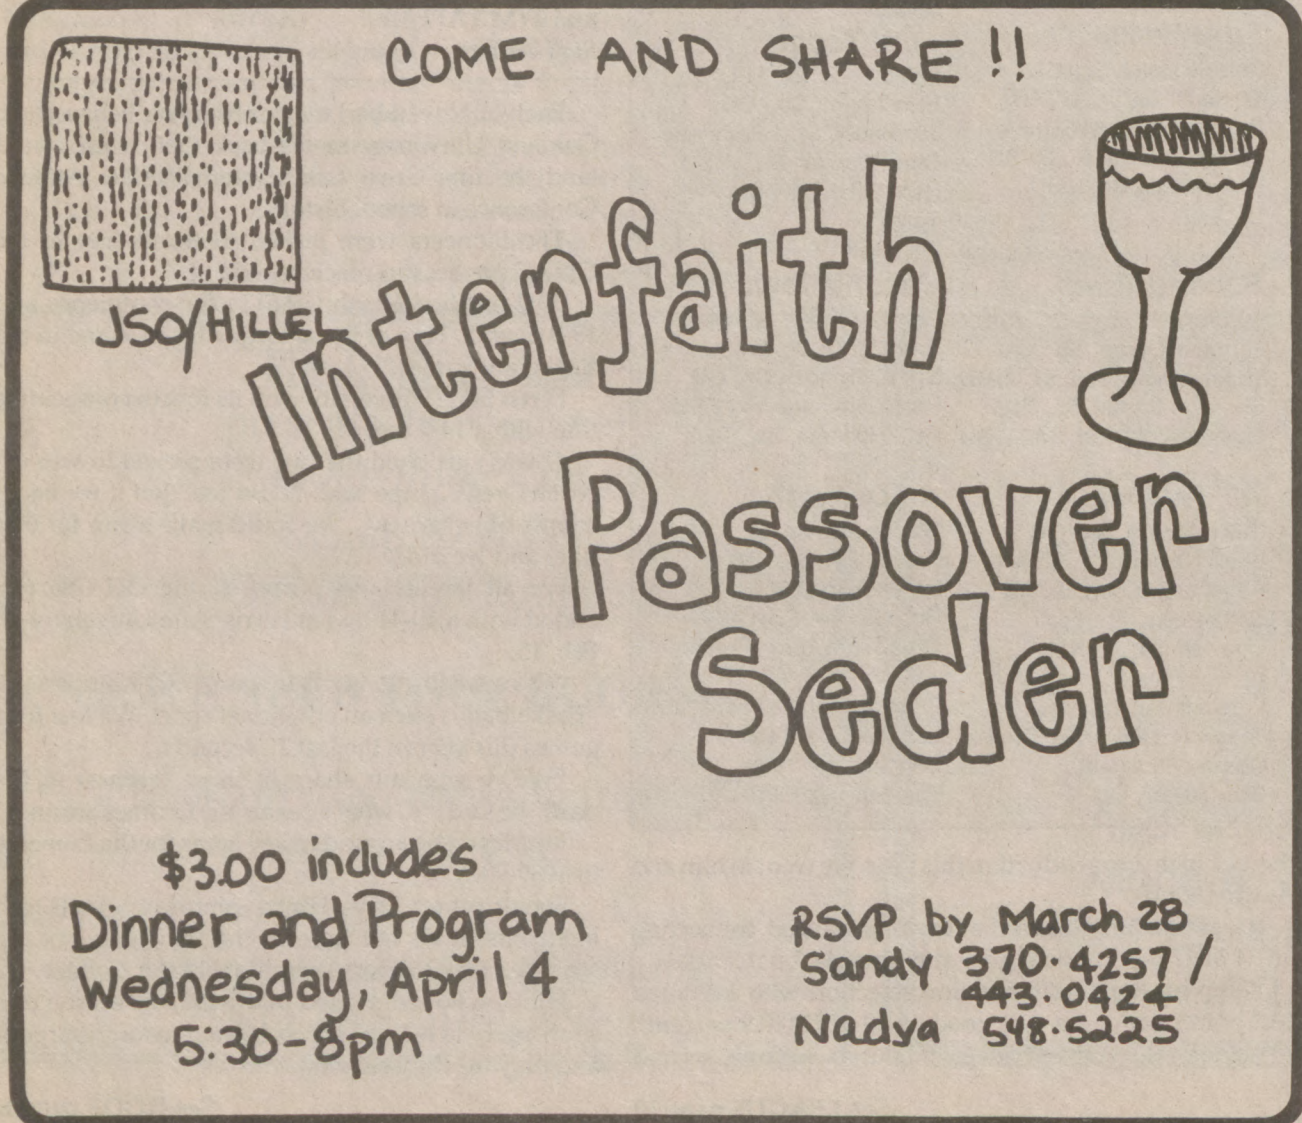 COME AND SHARE!!
JSO/HILLEL
Interfaith
Passover
Seder
$3.00 includes
Dinner and Program
Wednesday, April 4
5:30-8pm
RSVP by March 28
Sandy 370·4257/
443·0424
Nadya 548·5225